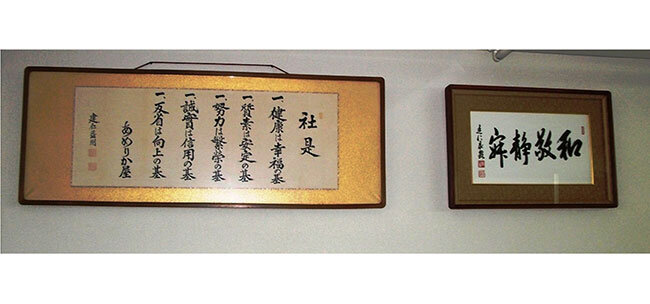 社是
一、健康は幸福の基
一、質素は安定の基
一、努力は繁栄の基
一、誠實は信用の基
一、反省は向上の基
あめりか屋
和敬静寂